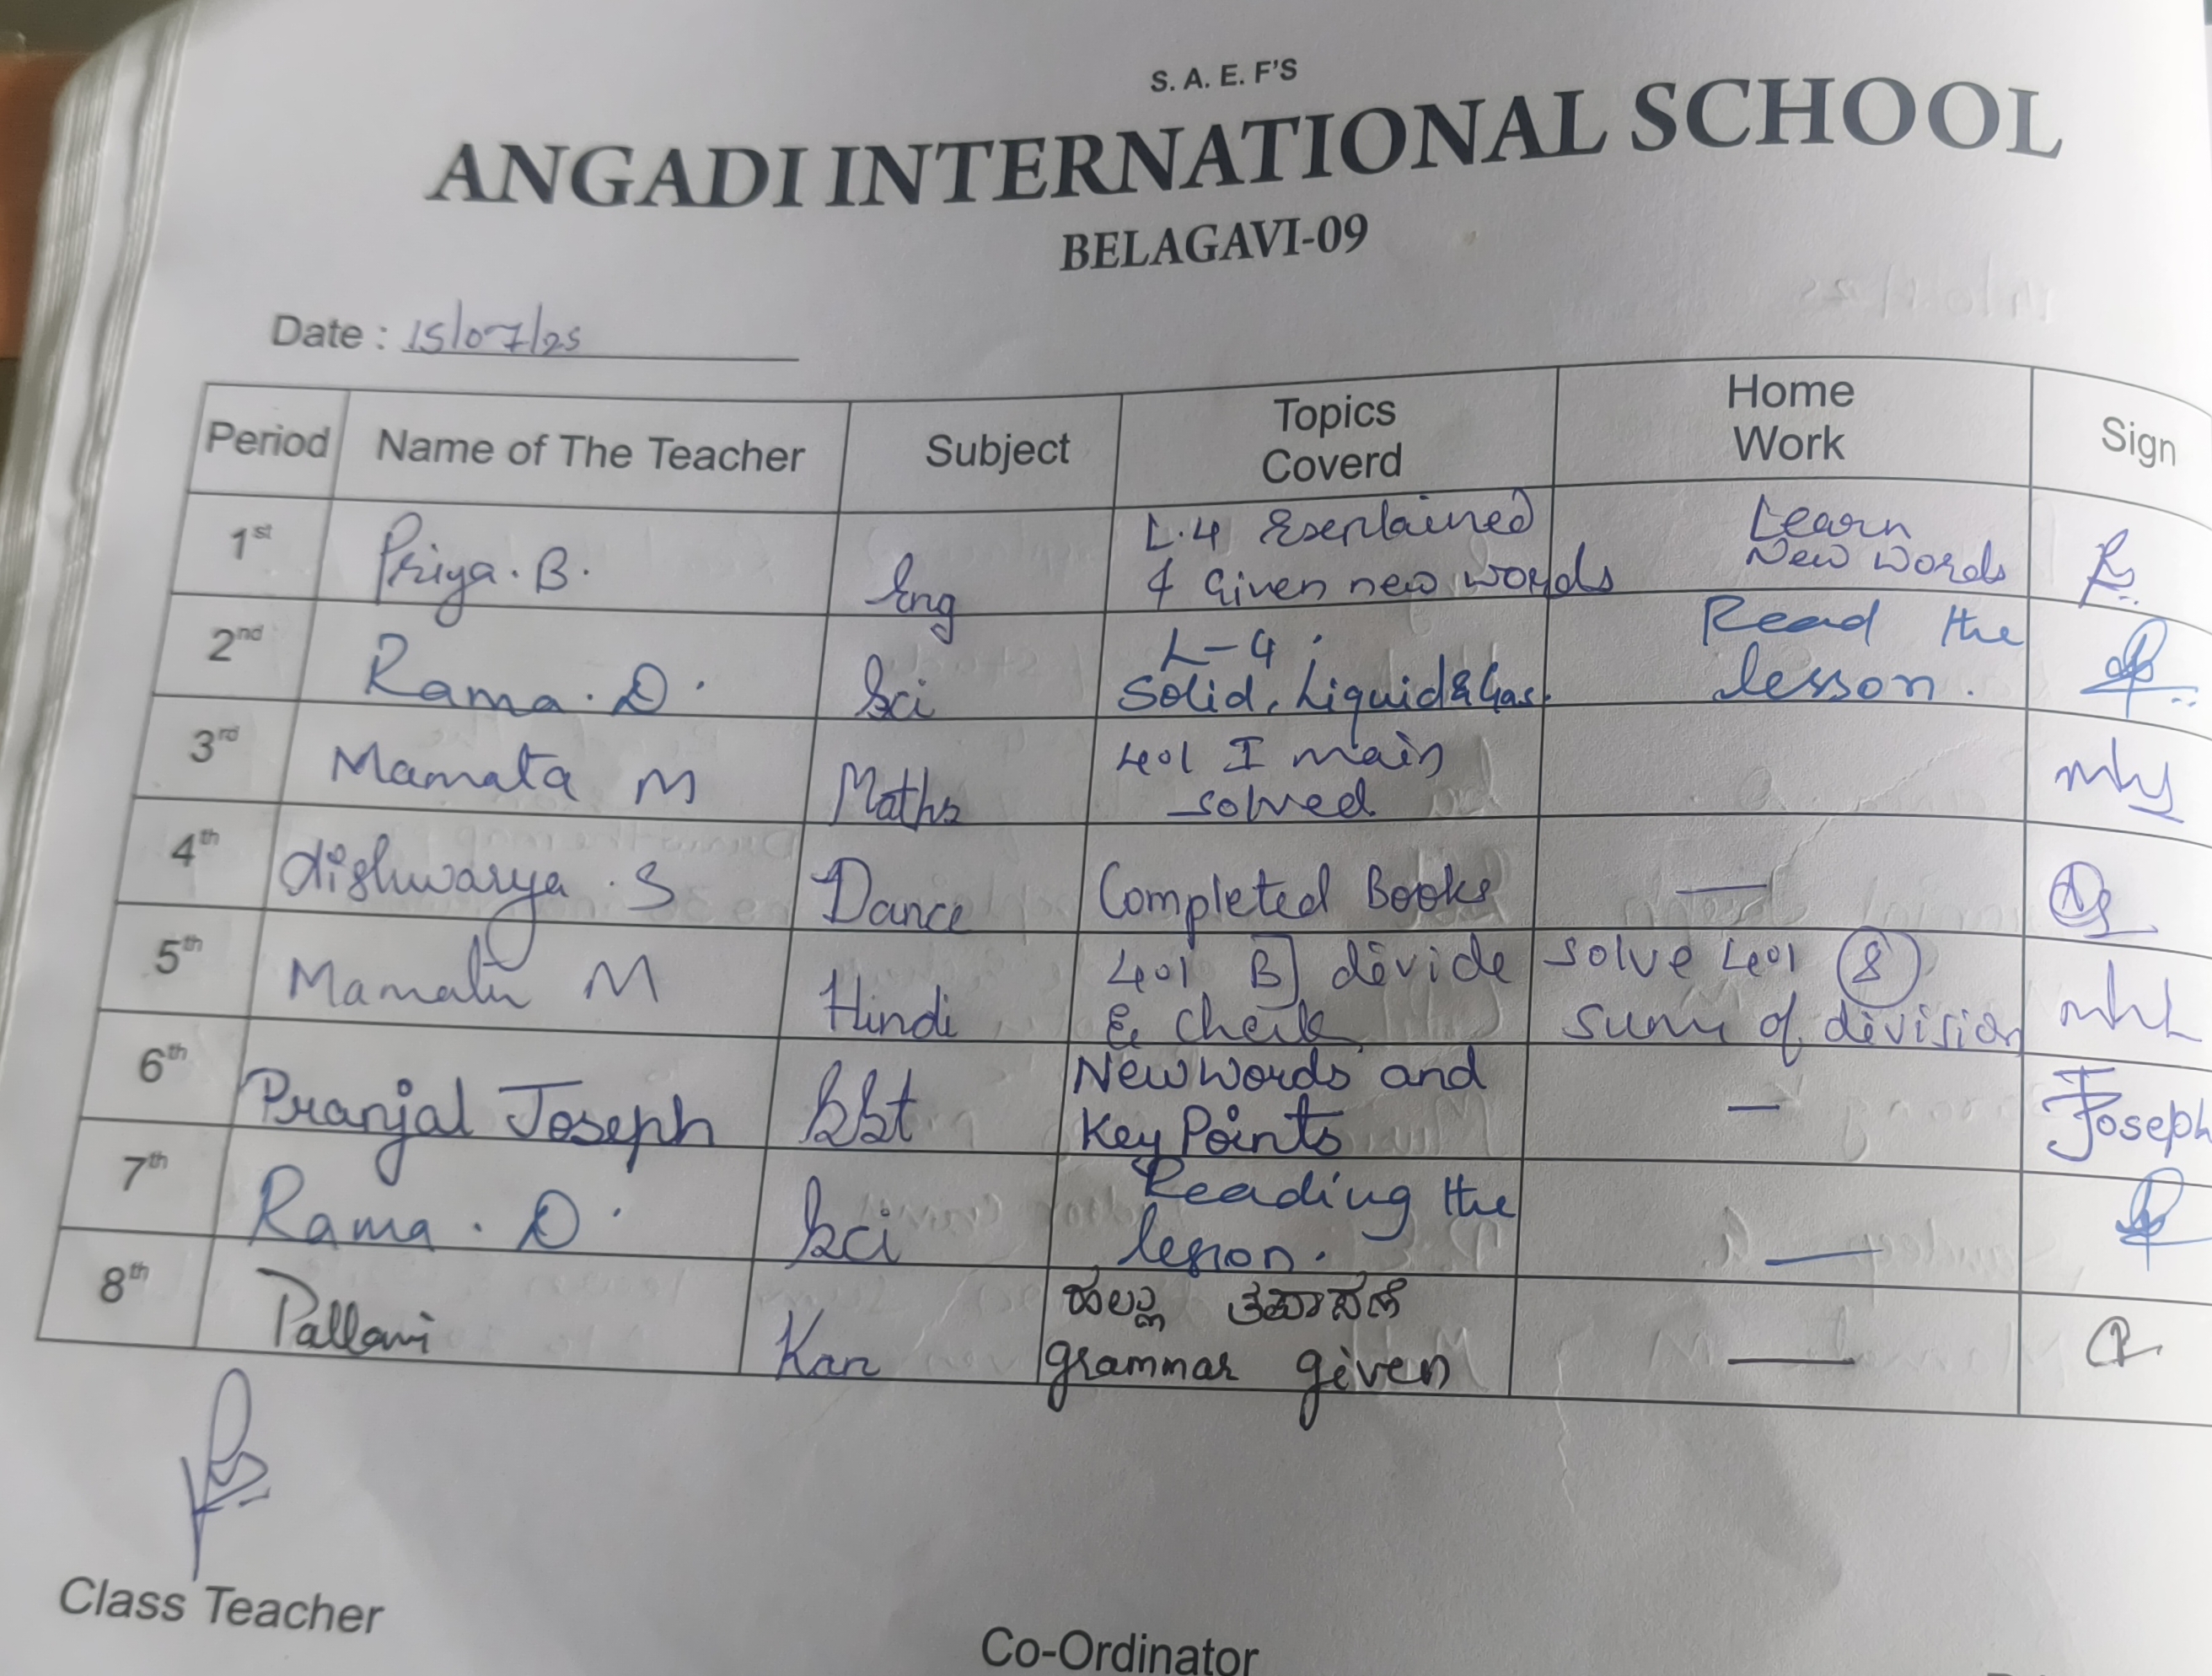 S. A. E. F'S
ANGADI INTERNATIONAL SCHOOL
BELAGAVI-09
Date : 15/07/25
Period Name of The Teacher Subject Topics Coverd Home Work Sign
1st Priya. B. Eng L.4 Explained & Given new words Learn New words
2nd Rama. D. Sci L-4 Solid, Liquid & Gas. Read the lesson.
3rd Mamata M Maths 401 I main solved
4th Aishwarya . S Dance Completed Books —
5th Mamata M Hindi 401 B] divide & check solve 401 8 sums of division
6th Pranjal Joseph SSt New words and Key Points — Joseph
7th Rama . D. Sci Reading the lesson. —
8th Pallavi Kan grammar given —
Class Teacher
Co-Ordinator